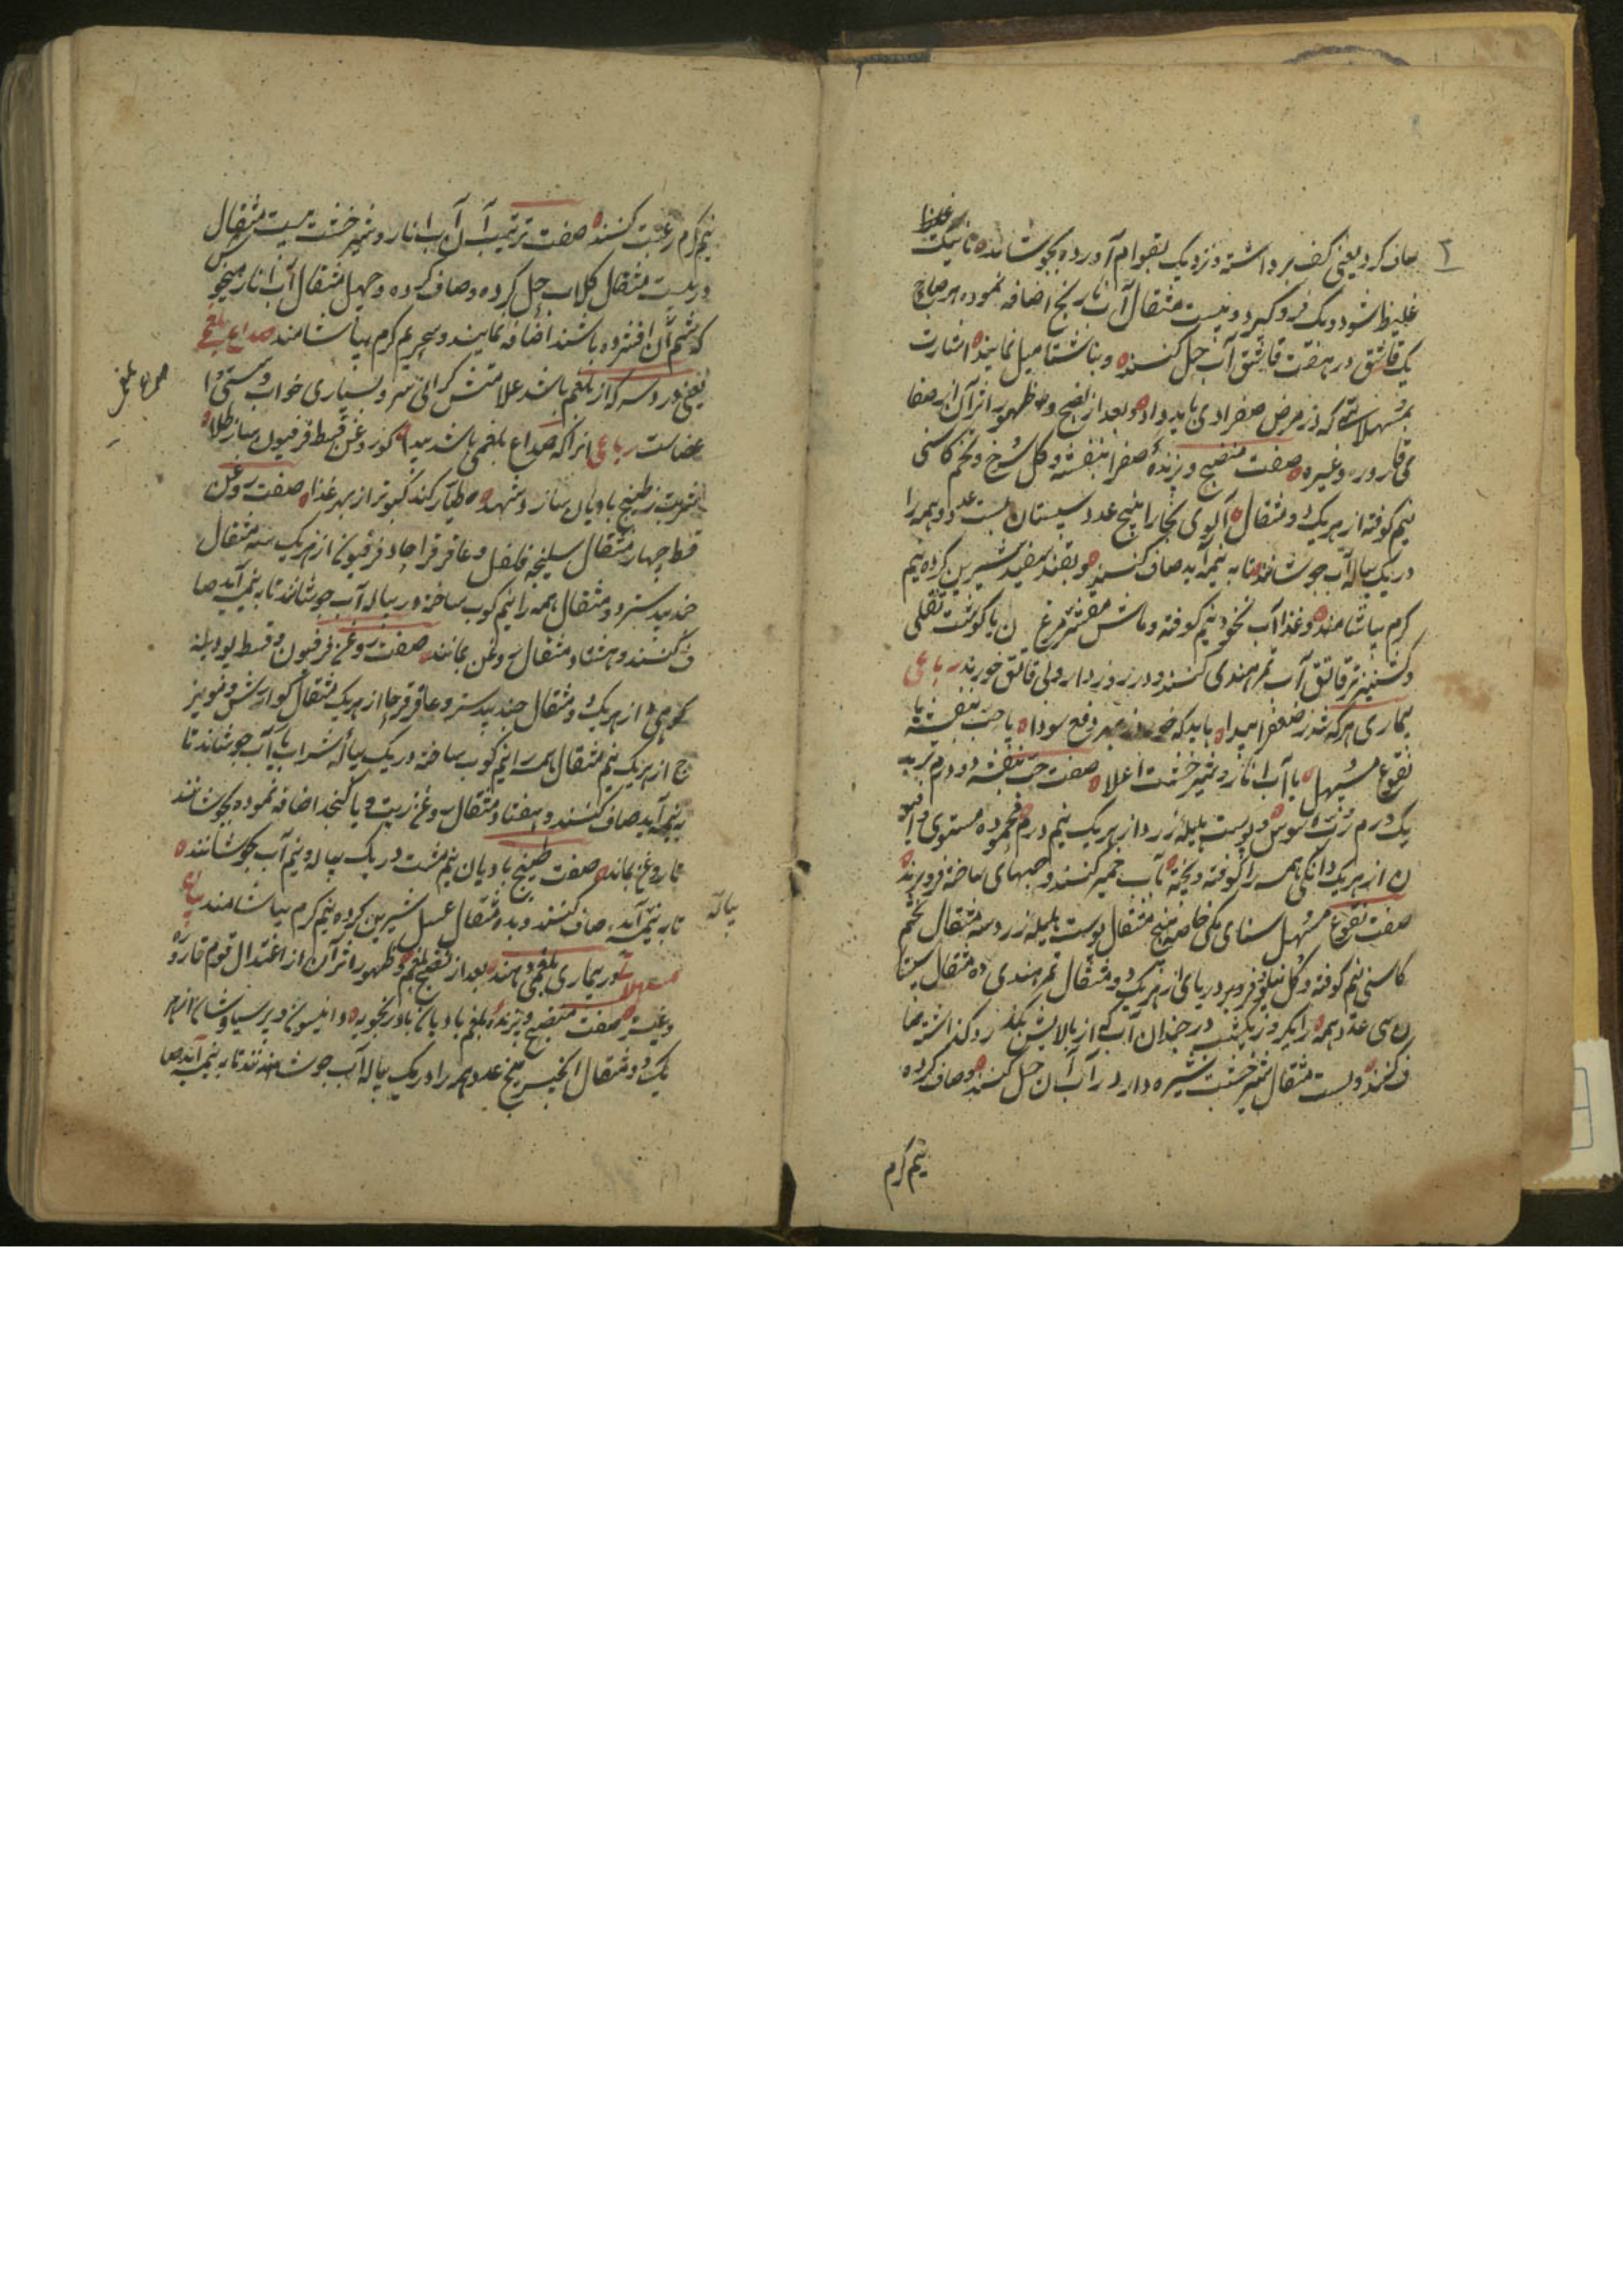 ۲
صاف کرد یعنی کف برداشته و نزدیک بقوام آورده بجوشانده تا نیک
غلیظ
غلیظ شود دیک فرو گیرد و بیست مثقال آب نارنج اضافه نموده هر صباح
یک قاشق در هفت قاشق آب حل کنند و بناشتا میل نمایند اشارت
بمسهلاتی که در مرض صفراوی باید داد و بعد از نضج و ظهور اثر آن از صفا
ی قاروره و غیره صفت منضج و پزندهٔ صفرا بنفشه و گل سرخ و تخم کاسنی
نیم کوفته از هر یک دو مثقال آلوی بخارا پنج عدد سپستان بیست عدد و همه را
در یک پیاله آب جوشانند تا به نیمه آید صاف کنند و بقند سفید شیرین کرده نیم
گرم بیاشامند و غذا آب نخود نیم کوفته و ماش مقشر مرغ ن یا گوشت نقلی
و گشنیز تر قاتق آب تمر هندی کنند و در روز دارو بی قاتق خورند رباعی
بیماری هر که شد ز صفرا پیدا باید که خورد ز بهر دفع سودا یا حب بنفشه یا
نقوع مسهل یا آب انار و شیر خشت اعلا صفت حب بنفشه دو درم تربد
یک درم رب سوس و پوست هلیله زرد از هر یک نیم درم محمودهٔ مستوی و انیسو
ن از هر یک دانگی همه را کوفته و بیخته بآب خمیر کنند و حبهای ساخته فرو برند
صفت نقوع مسهل سنای مکی خاصه پنج مثقال پوست هلیله زرد سه مثقال تخم
کاسنی نیم کوفته و گل نیلوفر و پر دریای از هر یک دو مثقال تمر هندی ده مثقال سپستا
ن سی عدد همه را یک روز یک شب در چندان آب که از بالایش بگذرد گذاشته صا
ف کنند و بیست مثقال شیر خشت شیره دار در آب آن حل کنند و صاف کرده
نیم گرم
نیم گرم رغبت کنند صفت ترتیب آن آب انار و شیر خشت بیست مثقال
در بیست مثقال گلاب حل کرده و صاف کرده و چهل مثقال آب انار میخوش
که شحم آن افشرده باشند اضافه نمایند و سحر نیم گرم بیاشامند صداع بلغمی
یعنی درد سر که از بلغم باشد علامتش گرانی سر و بسیاری خواب و سستی ا
عضاست رباعی آنرا که صداع بلغمی باشد پیدا گو روغن قسط و فرفیون ساز طلا
شربت ز طبیخ بادیان سازد و شهد طیار کند کبوتر از بهر غذا صفت روغن
قسط چهار مثقال سلیخه فلفل و عاقر قرحا و فرفیون از هر یک سه مثقال
جندبیدستر دو مثقال همه را نیم کوب ساخته در پیاله آب جوشانند تا به نیمه آید صا
ف کنند و هشتاد مثقال روغن بمانند صفت روغن فرفیون و قسط پودینه
کوهی از هر یک دو مثقال جندبیدستر و عاقر قرحا از هر یک مثقال گوارش و مویز
ج از هر یک نیم مثقال همه را نیم کوب ساخته در یک پیاله شراب یا آب جوشانند تا
به نیمه آید صاف کنند و هفتاد مثقال روغن زیت و یا کنجد اضافه نموده بجوشانند
تا روغن بماند صفت طبیخ بادیان نیم مشت در یک پیاله و نیم آب بجوشانند
پیاله
تا به نیمه آید صاف کنند و بده مثقال عسل شیرین کرده نیم گرم بیاشامند بیان
مسهلاتی
در بیماری بلغمی دهند بعد از نضج بلغم و ظهور اثر آن از اعتدال قوام قاروره
و غیره صفت منضج و پزندهٔ بلغم بادیان بادرنجبویه و انیسون و پرسیاوشان از هر
یک دو مثقال انجیر پنج عدد همه را در یک پیاله آب جوشانند تا به نیمه آید صا
صداع بلغمی